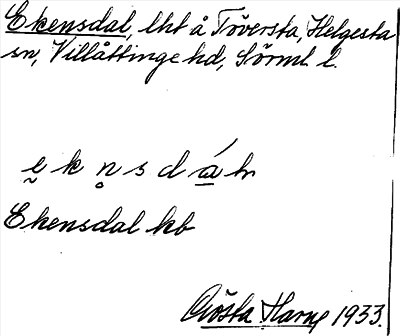 Ekensdal, lht å Töversta, Helgesta
sn, Villåttinge hd, Sörml. l.
e̬ k n̥ s d á̲ l
Ekensdal kb
Gösta Harne 1933.